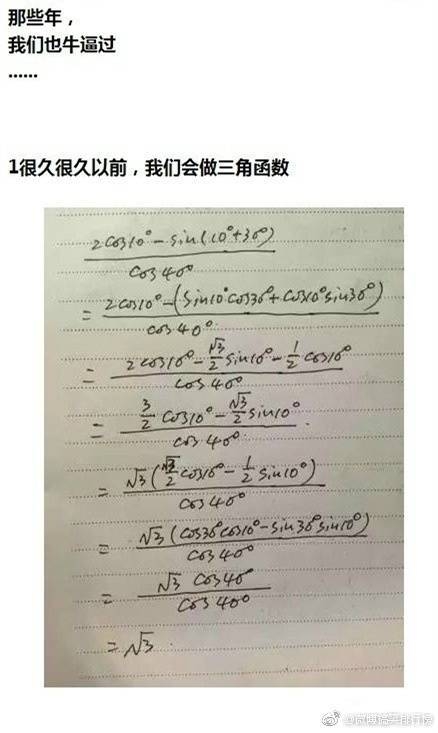 那些年，
我们也牛逼过
......
1很久很久以前，我们会做三角函数
2cos10°-sin(10°+30°)
cos40°
= 2cos10°-(sin10°cos30°+cos10°sin30°)
cos40°
= 2cos10°-√3/2 sin10°-1/2 cos10°
cos40°
= 3/2 cos10°-√3/2 sin10°
cos40°
= √3(√3/2 cos10°-1/2 sin10°)
cos40°
= √3(cos30°cos10°-sin30°sin10°)
cos40°
= √3 cos40°
cos40°
= √3